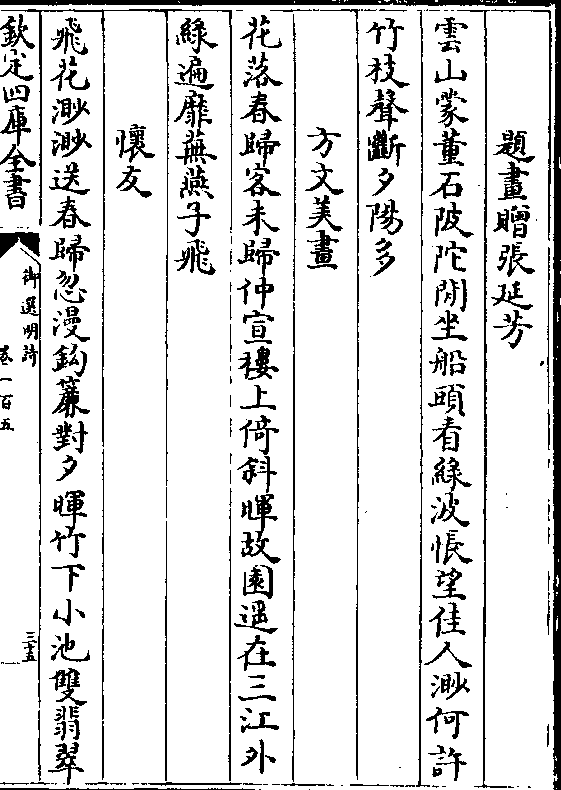 題畫贈張延芳
雲山蒙董石陂陀閒坐船頭看綠波悵望佳人渺何許
竹枝聲斷夕陽多
方文美畫
花落春歸客未歸仲宣樓上倚斜暉故園遥在三江外
綠遍蘼蕪燕子飛
懷友
飛花渺渺送春歸忽漫鈎簾對夕暉竹下小池雙翡翠
欽定四庫全書
御選明詩
卷一百五
三十五